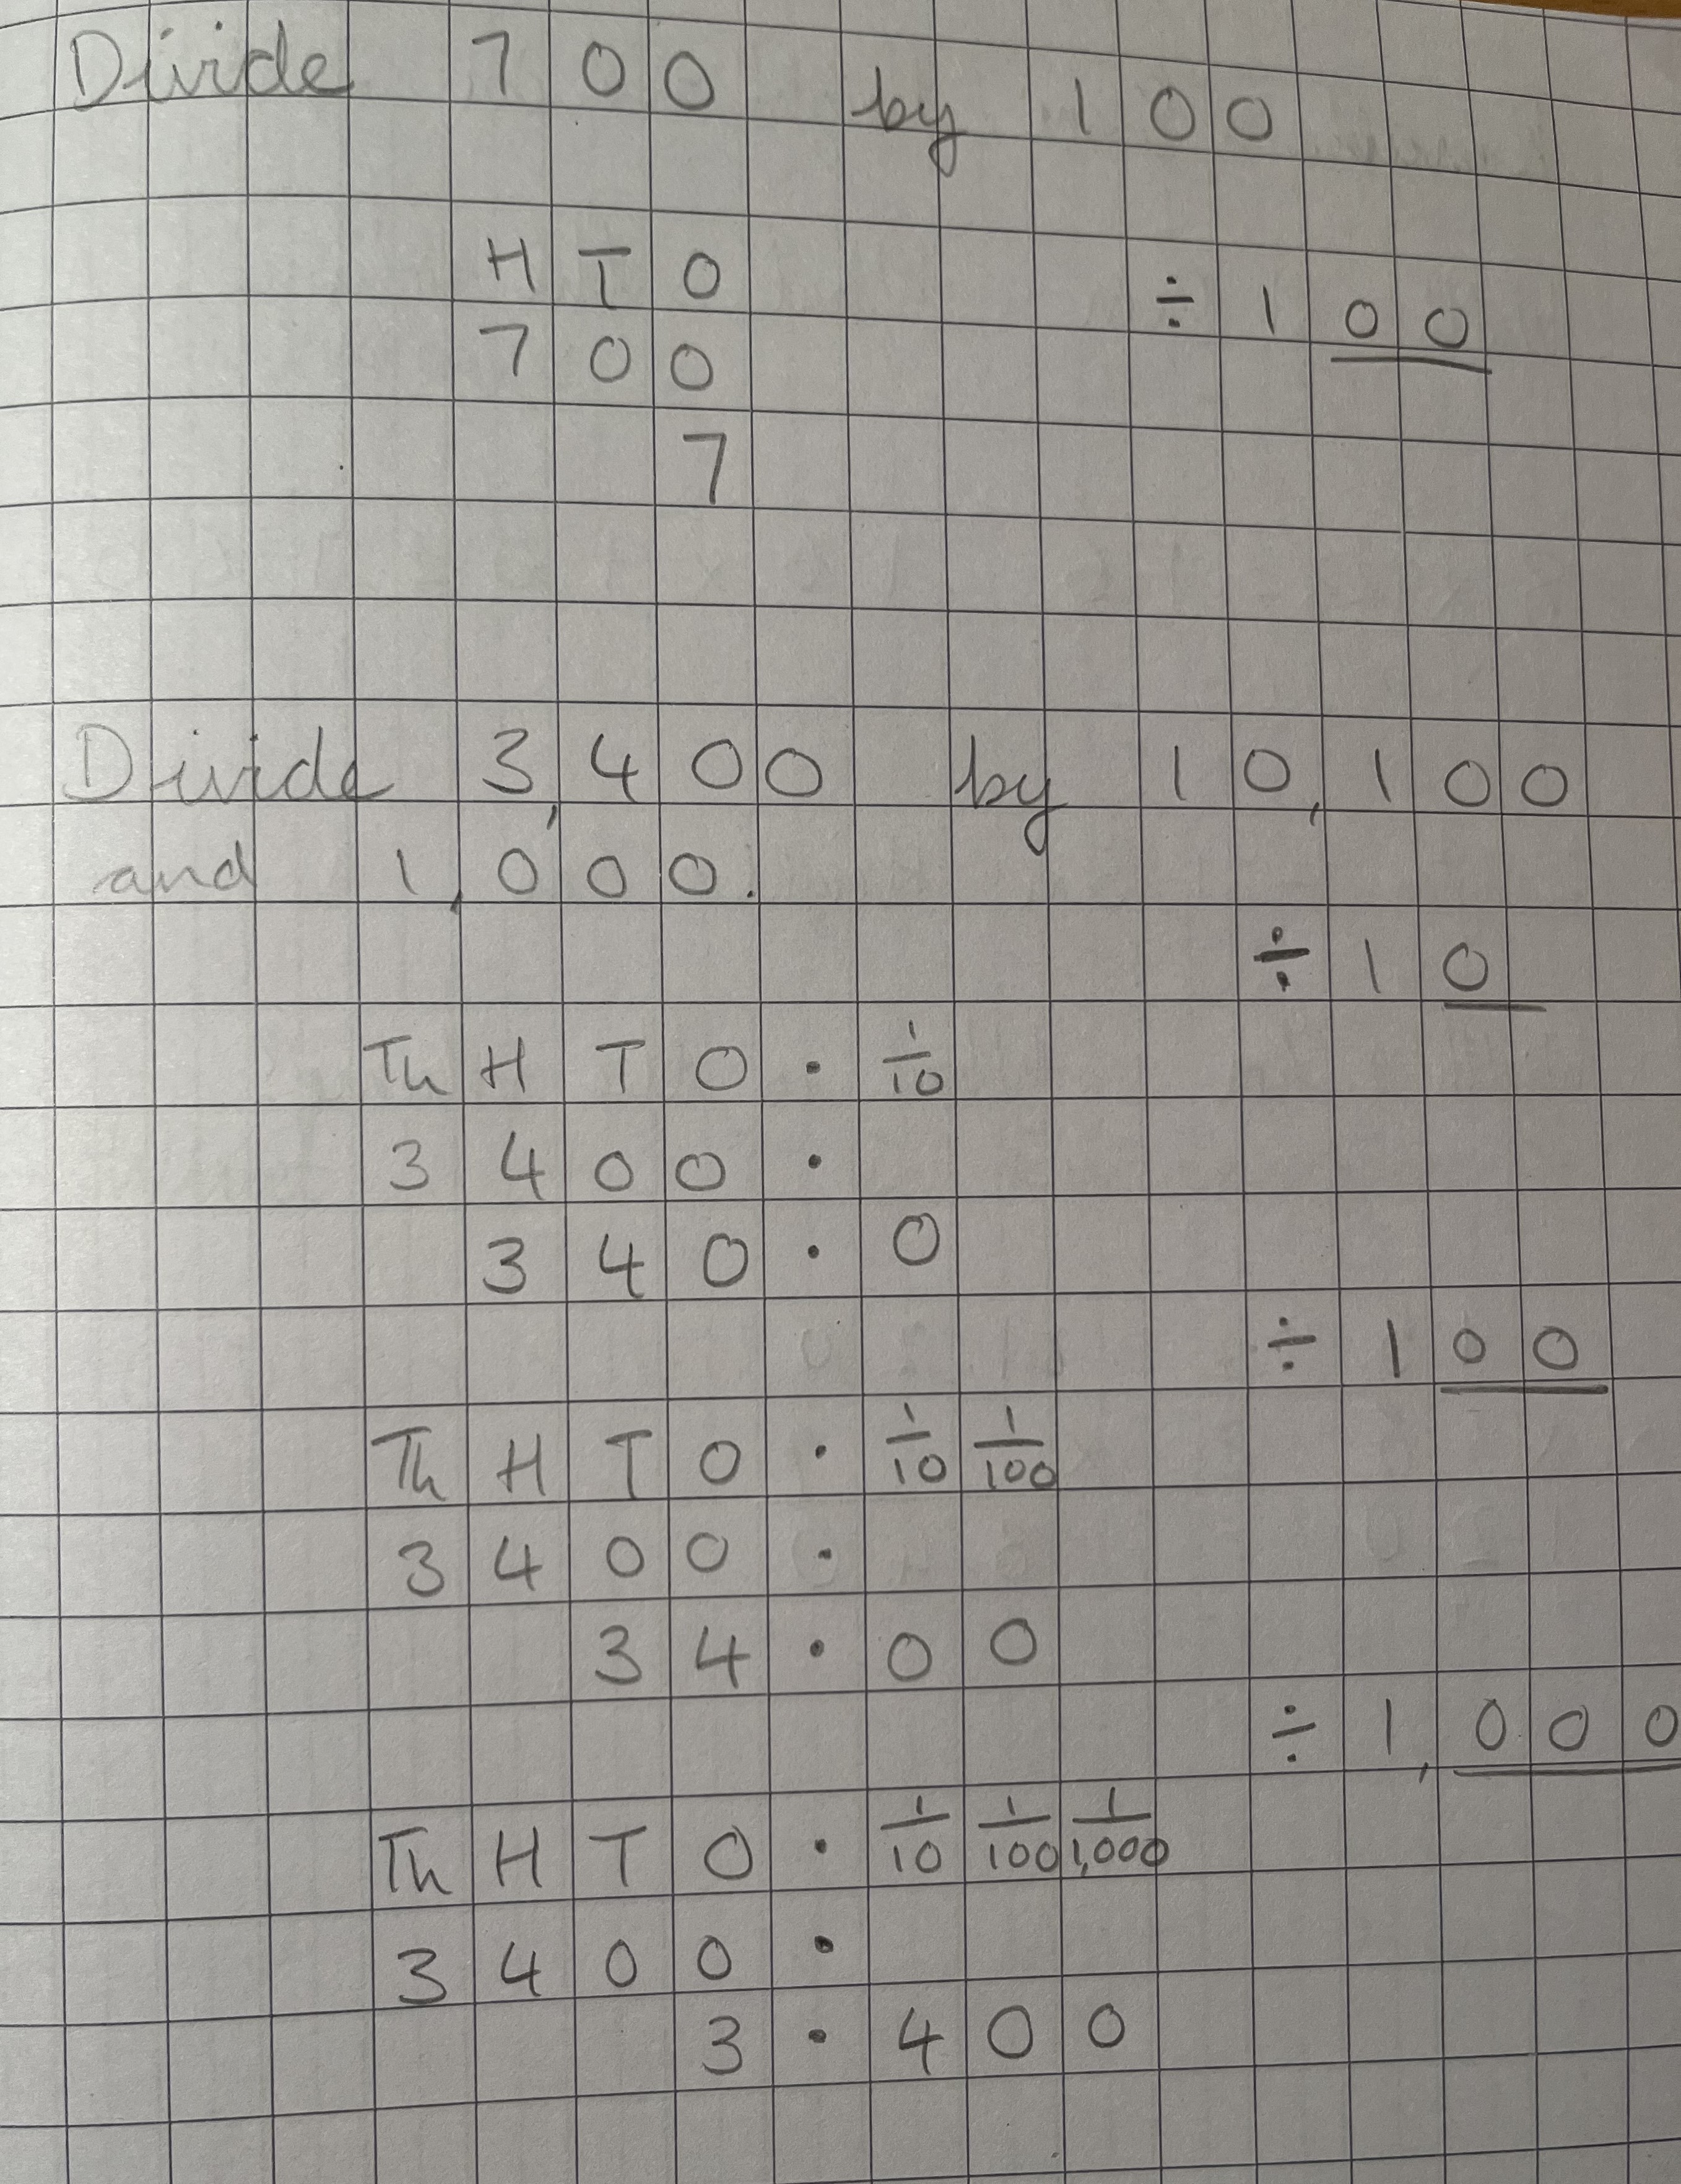 Divide 700 by 100
H T O ÷ 100
7 0 0
7
Divide 3,400 by 10, 100
and 1,000.
÷ 10
Th H T O . 1/10
3 4 0 0 .
3 4 0 . 0
÷ 100
Th H T O . 1/10 1/100
3 4 0 0 .
3 4 . 0 0
÷ 1,000
Th H T O . 1/10 1/100 1/1,000
3 4 0 0 .
3 . 4 0 0